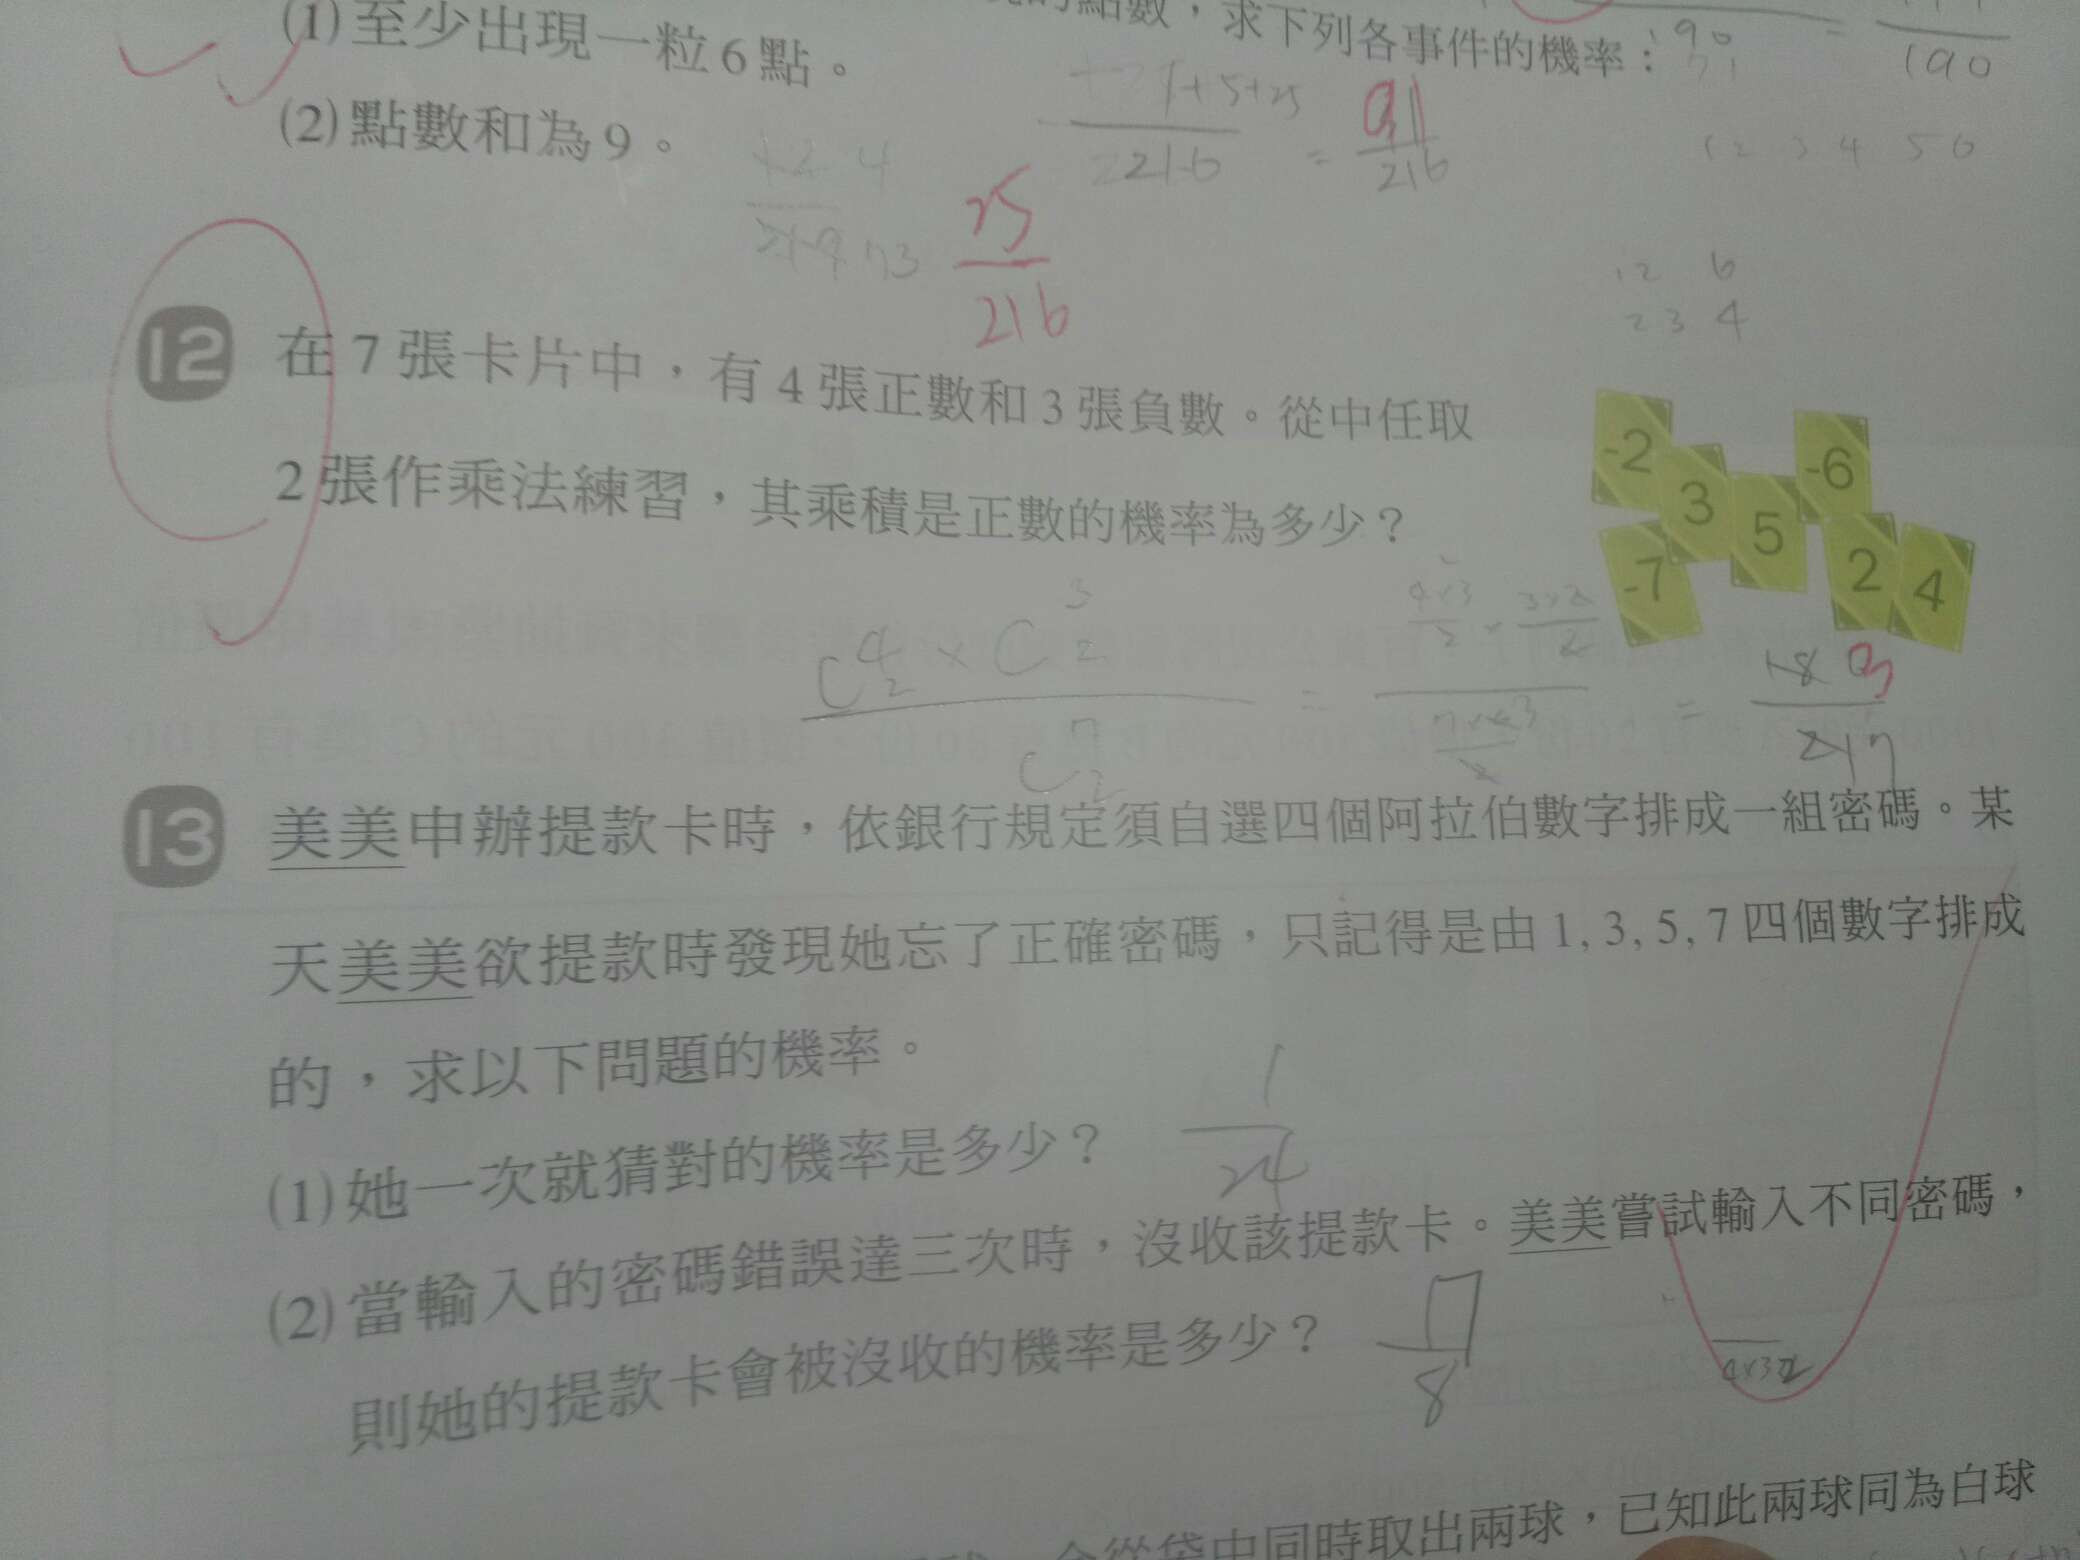 的點數，求下列各事件的機率：
(1)至少出現一粒6點。
(2)點數和為9。
1+5+25
216
=
91
216
190
190
1 2 3 4 5 6
25
216
1 2 6
2 3 4
12 在7張卡片中，有4張正數和3張負數。從中任取
2張作乘法練習，其乘積是正數的機率為多少？
-2 3 5 -6 -7 2 4
C 4 2 × C 3 2
C 7 2
=
4×3 2 × 3×2 2
=
3
7
13 美美申辦提款卡時，依銀行規定須自選四個阿拉伯數字排成一組密碼。某
天美美欲提款時發現她忘了正確密碼，只記得是由1, 3, 5, 7四個數字排成
的，求以下問題的機率。
(1)她一次就猜對的機率是多少？ 1/24
(2)當輸入的密碼錯誤達三次時，沒收該提款卡。美美嘗試輸入不同密碼，
則她的提款卡會被沒收的機率是多少？ 7/8
4×3×2
從袋中同時取出兩球，已知此兩球同為白球